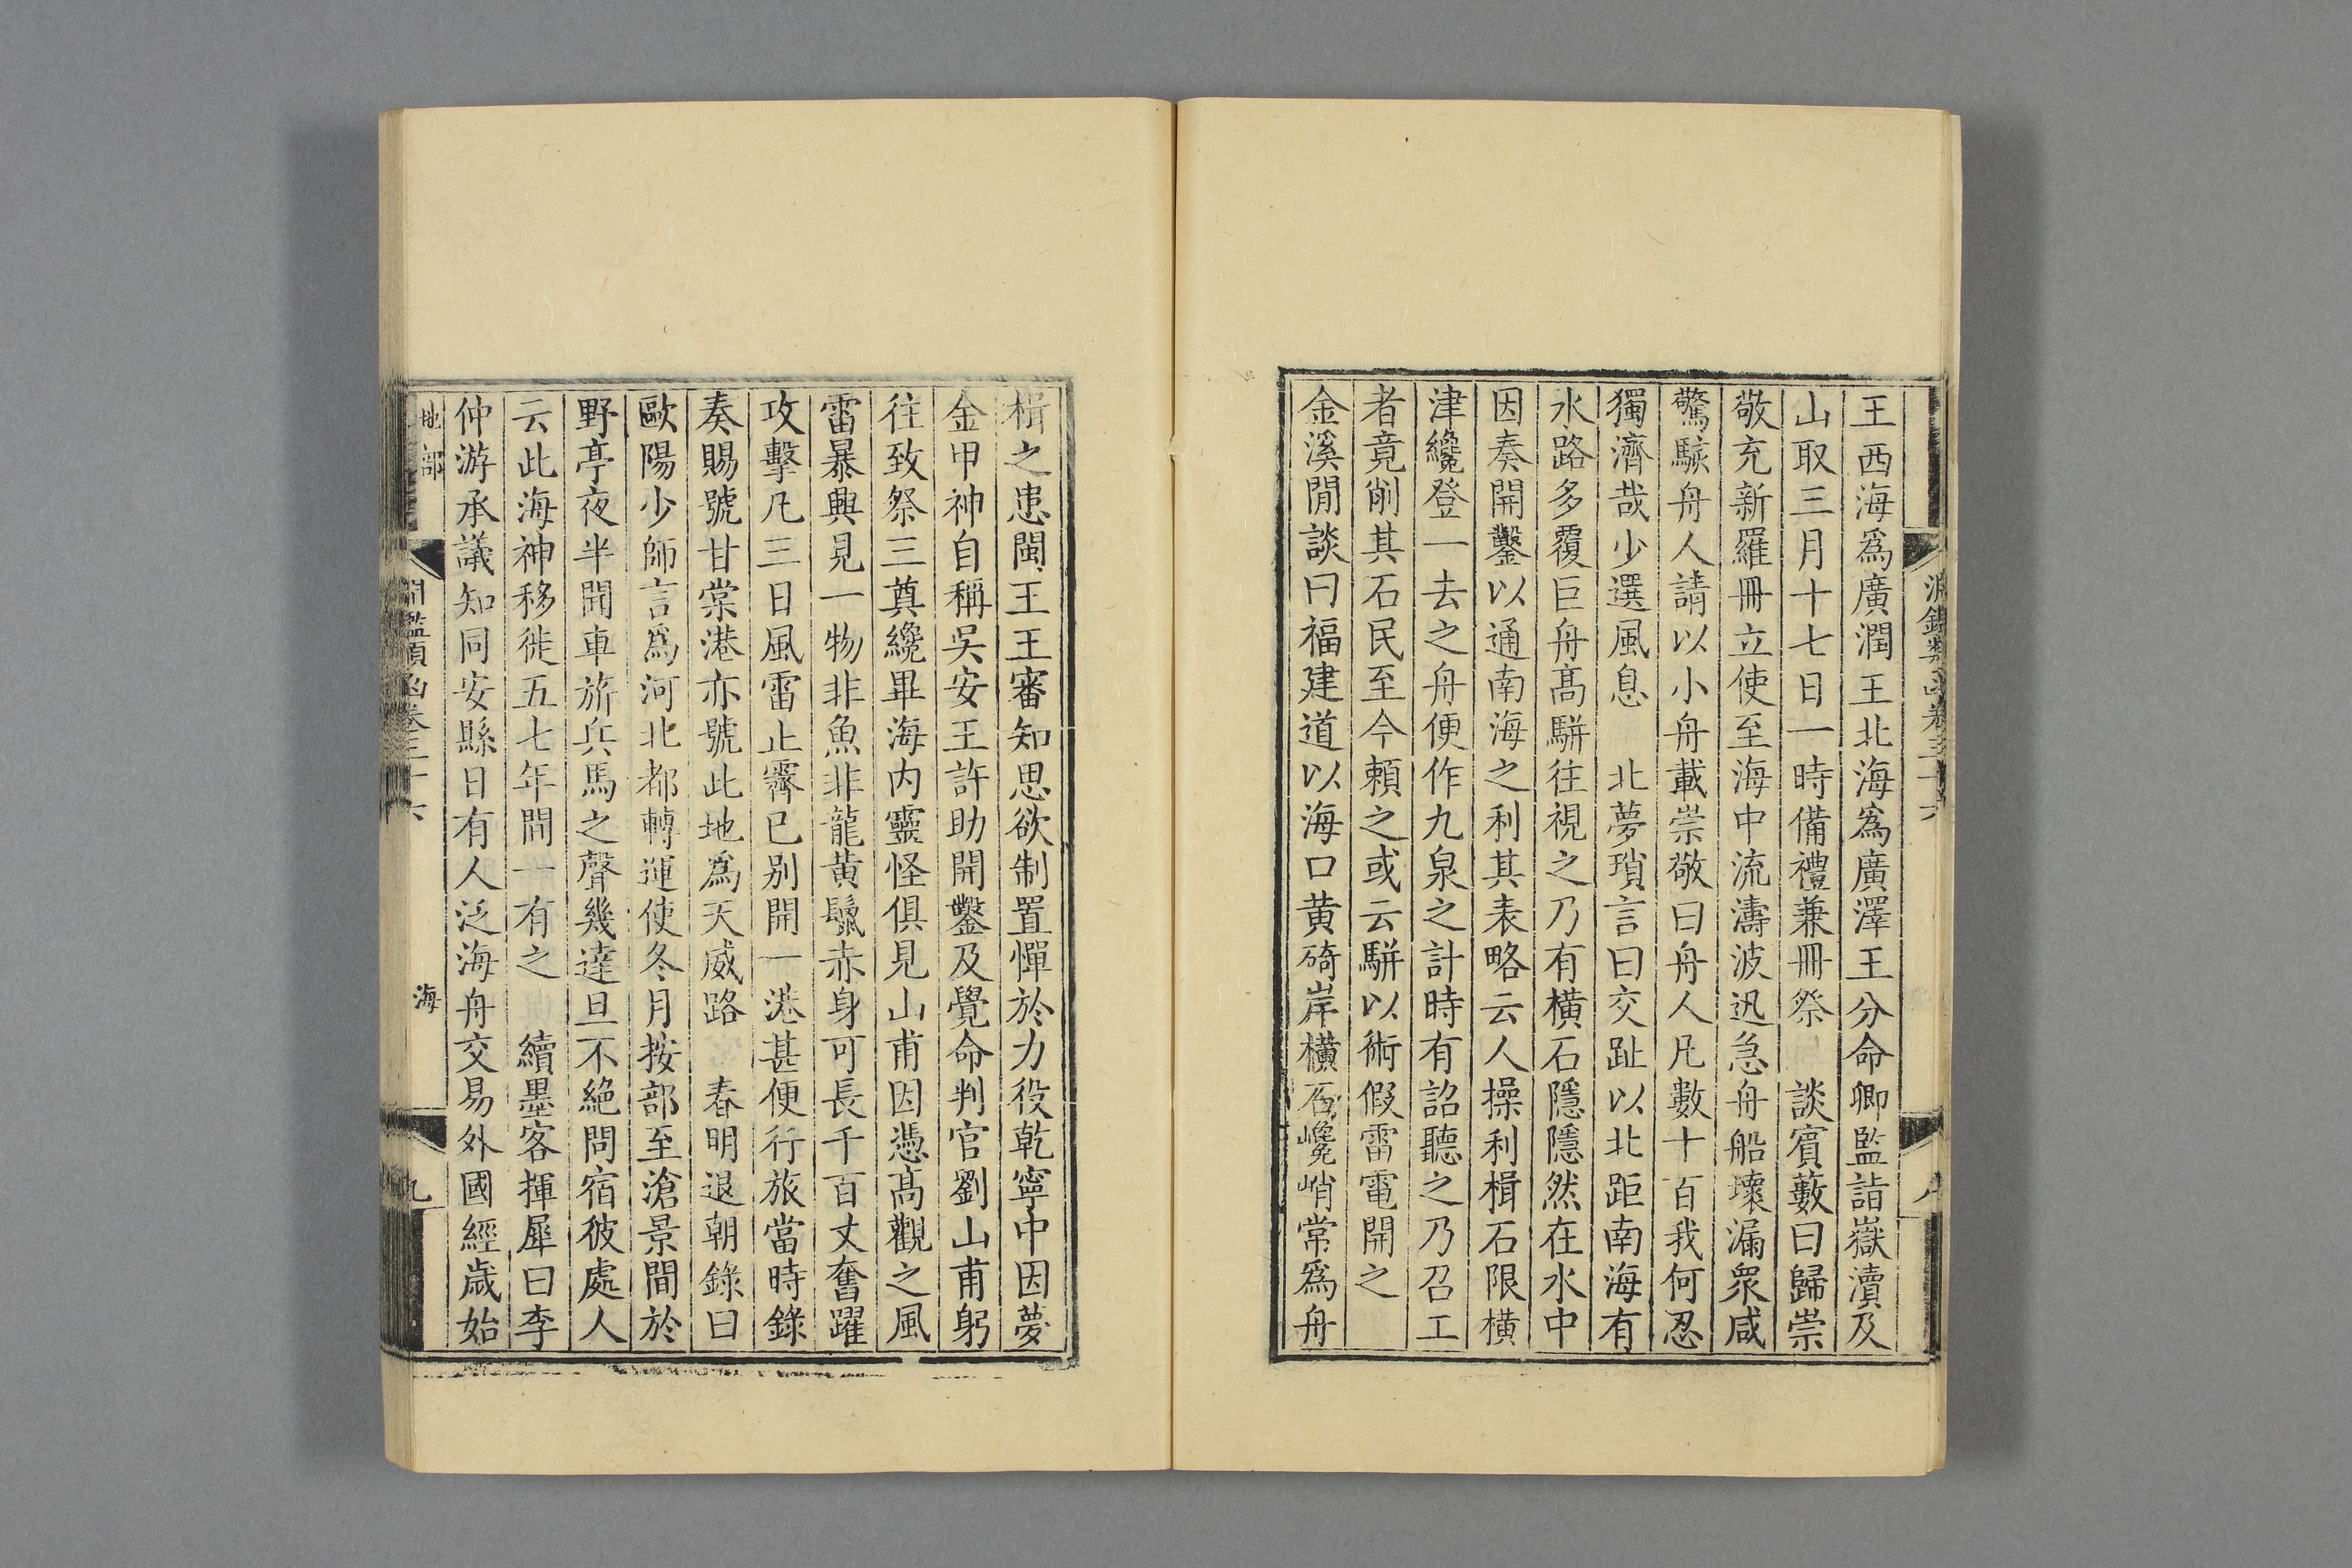 淵鑑類函卷三十六
王西海爲廣潤王北海爲廣澤王分命卿監詣嶽瀆及
山取三月十七日一時備禮兼冊祭　談賓藪曰歸崇
敬充新羅冊立使至海中流濤波迅急舟船壞漏衆咸
驚駭舟人請以小舟載崇敬曰舟人凡數十百我何忍
獨濟哉少選風息　北夢瑣言曰交趾以北距南海有
水路多覆巨舟髙駢往視之乃有橫石隱隱然在水中
因奏開鑿以通南海之利其表略云人操利楫石限橫
津纔登一去之舟便作九泉之計時有詔聽之乃召工
者竟削其石民至今賴之或云駢以術假雷電開之
金溪閒談曰福建道以海口黄碕岸橫石巉峭常爲舟
楫之患閩王王審知思欲制置憚於力役乾寧中因夢
金甲神自稱吳安王許助開鑿及覺命判官劉山甫躬
往致祭三奠纔畢海内靈怪俱見山甫因憑髙觀之風
雷暴興見一物非魚非龍黄鬛赤身可長千百丈奮躍
攻擊凡三日風雷止霽已别開一港甚便行旅當時錄
奏賜號甘棠港亦號此地爲天威路　春明退朝錄曰
歐陽少師言爲河北都轉運使冬月按部至滄景間於
野亭夜半聞車旂兵馬之聲幾達旦不絶問宿彼處人
云此海神移徙五七年間一有之　續墨客揮犀曰李
仲游承議知同安縣日有人泛海舟交易外國經歳始
地部
海
淵鑑類函卷三十六
九